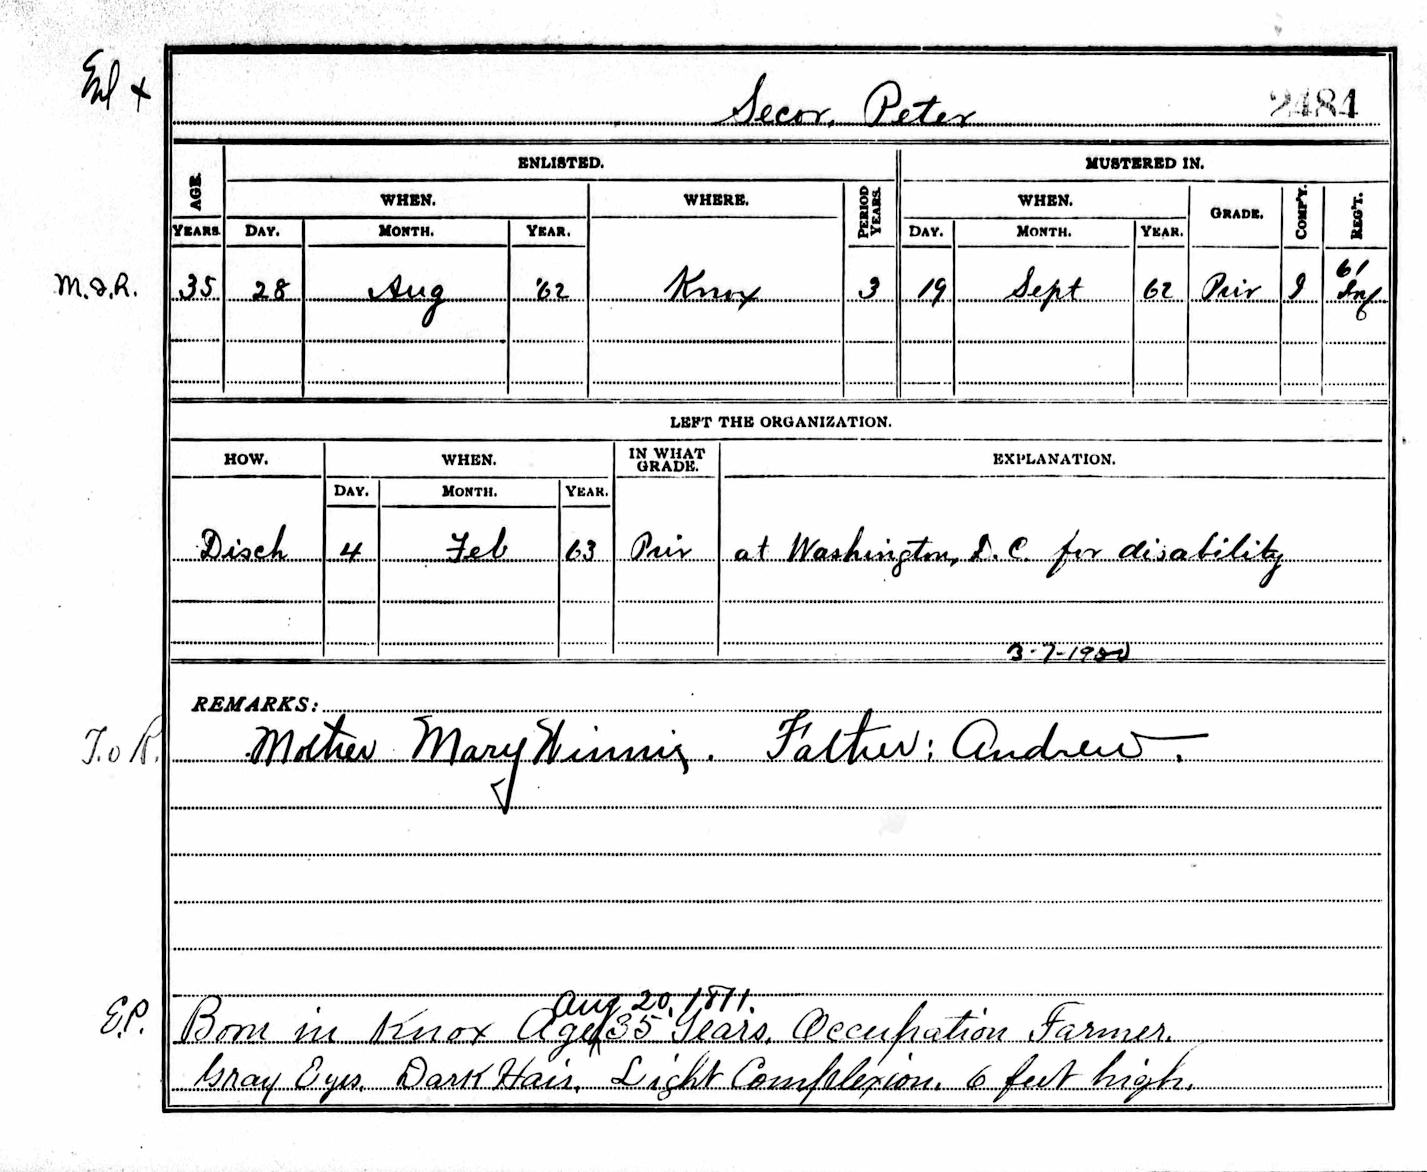 Enl x
Secor, Peter 2484
ENLISTED. MUSTERED IN.
AGE. WHEN. WHERE. PERIOD YEARS. WHEN. GRADE. COMP'Y. REG'T.
YEARS. DAY. MONTH. YEAR. DAY. MONTH. YEAR.
M.I.R. 35 28 Aug '62 Knox 3 19 Sept 62 Priv I 61 Inf
LEFT THE ORGANIZATION.
HOW. WHEN. IN WHAT GRADE. EXPLANATION.
DAY. MONTH. YEAR.
Disch 4 Feb 63 Priv at Washington, D.C. for disability
3-7-1900
REMARKS:
T.o R. Mother Mary Winnig. Father: Andrew.
Aug 20,
E.P. Born in Knox Age 35 Years. Occupation Farmer.
Gray Eyes. Dark Hair. Light Complexion. 6 feet high.